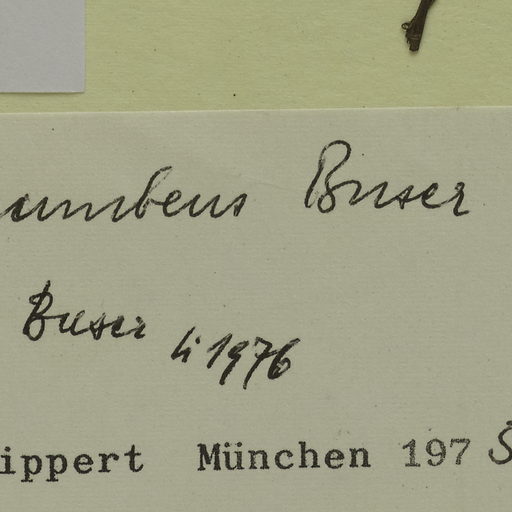 umbens Buser
Buser Li 1976
ippert München 1975